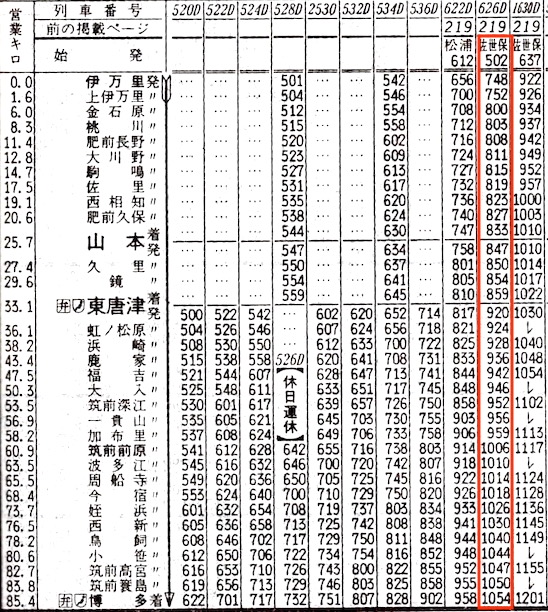 営業キロ 列車番号 520D 522D 524D 528D 2530 532D 534D 536D 622D 626D 1630D
前の掲載ページ 219 219 219
始発 松浦 612 佐世保 502 佐世保 637
0.0 伊万里発 … … … 501 … … 542 … 656 748 922
1.6 上伊万里〃 … … … 504 … … 546 … 700 752 926
6.0 金石原〃 … … … 512 … … 554 … 708 800 934
8.3 桃川〃 … … … 515 … … 558 … 712 803 937
11.4 肥前長野〃 … … … 520 … … 602 … 716 808 942
12.8 大川野〃 … … … 523 … … 609 … 723 811 949
14.7 駒鳴〃 … … … 527 … … 613 … 727 815 952
17.5 佐里〃 … … … 531 … … 617 … 732 819 957
19.1 西相知〃 … … … 535 … … 620 … 736 823 1000
20.6 肥前久保〃 … … … 538 … … 624 … 740 827 1003
25.7 山本着 … … … 544 … … 630 … 747 833 1010
発 … … … 547 … … 634 … 758 847 1010
27.4 久里〃 … … … 550 … … 637 … 801 850 1014
29.6 鏡〃 … … … 554 … … 641 … 805 854 1017
33.1 弁 東唐津着 … … … 559 … … 645 … 810 859 1022
発 500 522 542 … 602 620 652 714 817 920 1030
36.1 虹ノ松原〃 504 526 546 … 607 624 656 718 821 924 レ
38.2 浜崎〃 508 530 550 … 612 633 700 722 825 928 1040
43.4 鹿家〃 515 538 558 526D 620 641 708 731 833 936 1048
47.5 福吉〃 521 544 607 【休日運休】 628 647 713 741 844 942 1054
50.3 大入〃 525 548 611 633 651 717 745 848 946 レ
53.5 筑前深江〃 530 601 617 639 657 726 750 858 952 1102
56.9 一貴山〃 535 605 621 645 703 730 755 903 956 レ
58.2 加布里〃 537 608 624 649 706 733 758 906 959 1113
60.9 筑前前原〃 541 612 628 642 655 716 738 803 914 1006 1117
63.5 波多江〃 545 616 632 646 700 720 742 807 918 1010 レ
65.5 周船寺〃 549 620 636 650 705 725 745 816 922 1014 1124
68.4 今宿〃 553 624 640 700 710 729 750 820 926 1018 1128
73.7 姪浜〃 601 632 654 708 719 737 803 834 933 1026 1136
76.5 西新〃 605 636 658 713 725 742 808 838 941 1030 1145
78.2 鳥飼〃 608 646 702 717 729 750 811 848 944 1040 1149
80.6 小笹〃 612 650 706 722 734 754 816 852 948 1044 レ
82.7 筑前高宮〃 616 653 710 726 743 800 822 855 952 1047 1155
83.8 筑前簑島〃 619 656 713 729 746 803 825 858 955 1050 レ
85.4 弁 博多着 622 701 717 732 751 807 828 902 958 1054 1201